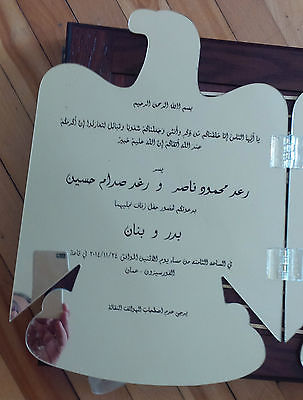 بسم الله الرحمن الرحيم
يا أيها الناس إنا خلقناكم من ذكر وأنثى وجعلناكم شعوباً وقبائل لتعارفوا إن أكرمكم
عند الله أتقاكم إن الله عليم خبير
يسر
رعد محمود ناصر و رغد صدام حسين
بدعوتكم لحضور حفل زفاف نجليهما
بدر و بنان
في الساعة الثامنة من مساء يوم الاثنين الموافق ٢٠١٤/١١/٢٤ في قاعة
الفورسيزون - عمان
يرجى عدم اصطحاب الهواتف النقالة